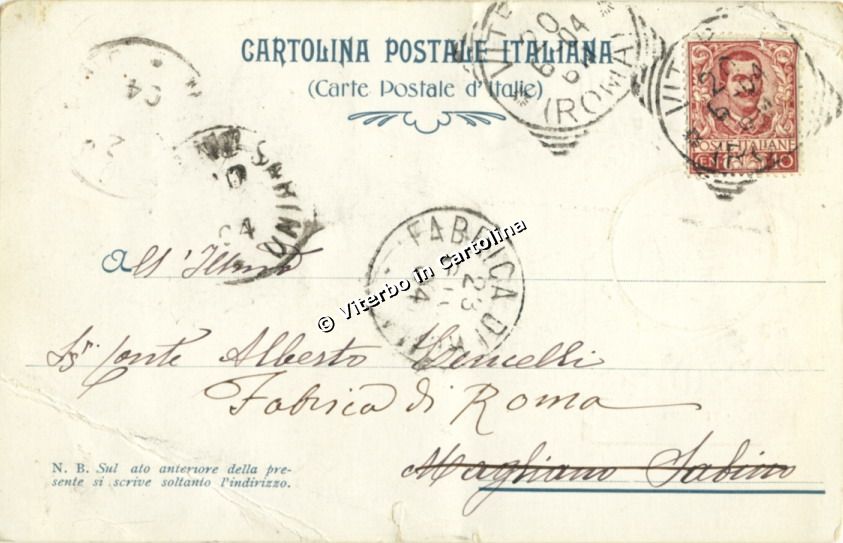 CARTOLINA POSTALE ITALIANA
(Carte Postale d'Italie)
VITE
20
6
04
(ROMA)
VITE
POSTE ITALIANE
04
04
All' Illmo
FABRICA DI
23
04
© Viterbo in Cartolina
Sigr. Conte Alberto
Fabrica di Roma
Magliano Sabino
N. B. Sul ato anteriore della pre-
sente si scrive soltanto l'indirizzo.